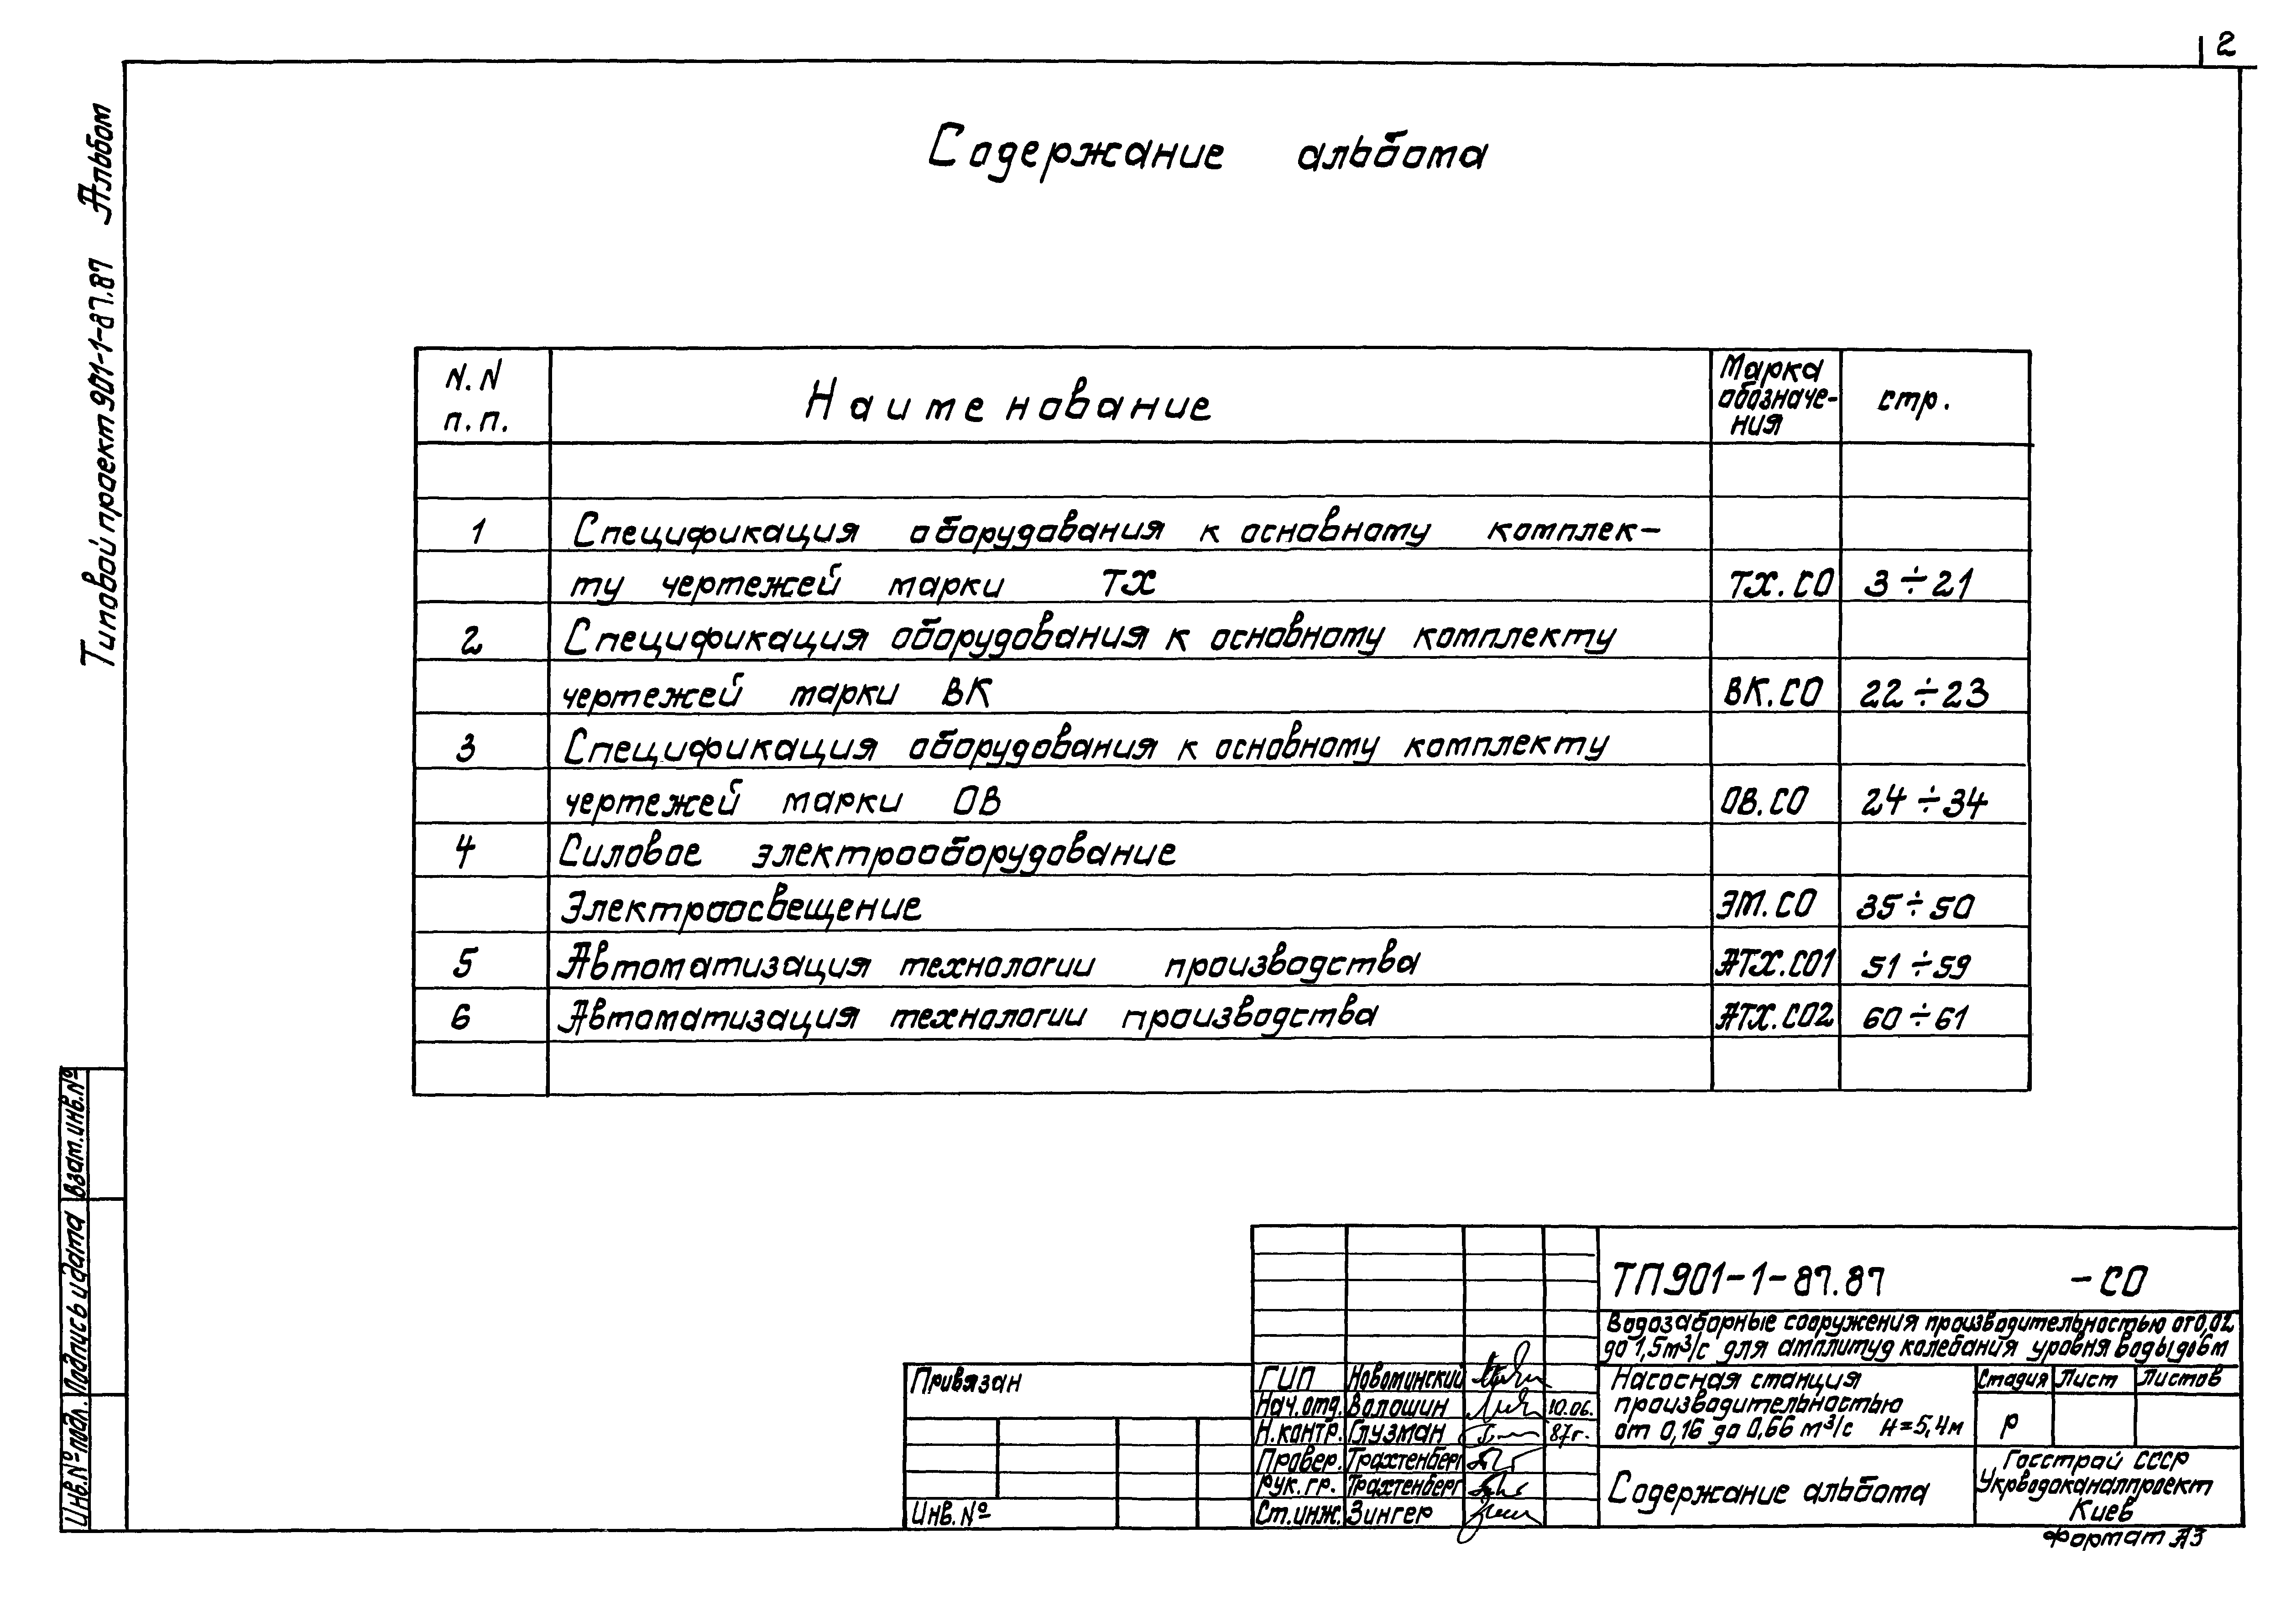 2
Типовой проект 901-1-87.87 Альбом
Содержание альбома
N.N п.п.
Наименование
Марка обозначе-ния
стр.
1 Спецификация оборудования к основному комплек-
ту чертежей марки ТХ ТХ.СО 3÷21
2 Спецификация оборудования к основному комплекту
чертежей марки ВК ВК.СО 22÷23
3 Спецификация оборудования к основному комплекту
чертежей марки ОВ ОВ.СО 24÷34
4 Силовое электрооборудование
Электроосвещение ЭМ.СО 35÷50
5 Автоматизация технологии производства АТХ.СО1 51÷59
6 Автоматизация технологии производства АТХ.СО2 60÷61
Взам.инв.№
Подпись и дата
Инв.№ подл.
Привязан
Инв.№
ГИП Новоминский
Нач.отд. Волошин 10.06.
Н.контр. Глузман 87г.
Провер. Трахтенберг
Рук.гр. Трахтенберг
Ст.инж. Зингер
ТП901-1-87.87 -СО
Водозаборные сооружения производительностью от 0,02
до 1,5м³/с для амплитуд колебания уровня воды до 6м
Насосная станция
производительностью
от 0,16 до 0,66 м³/с Н=5,4м
Стадия Лист Листов
Р
Содержание альбома
Госстрой СССР
Укрводоканалпроект
Киев
Формат А3